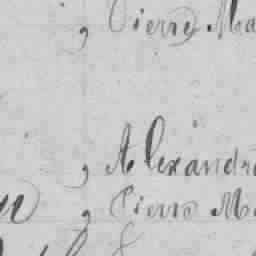 , Pierre Ma
, Alexandre
, Pierre Ma